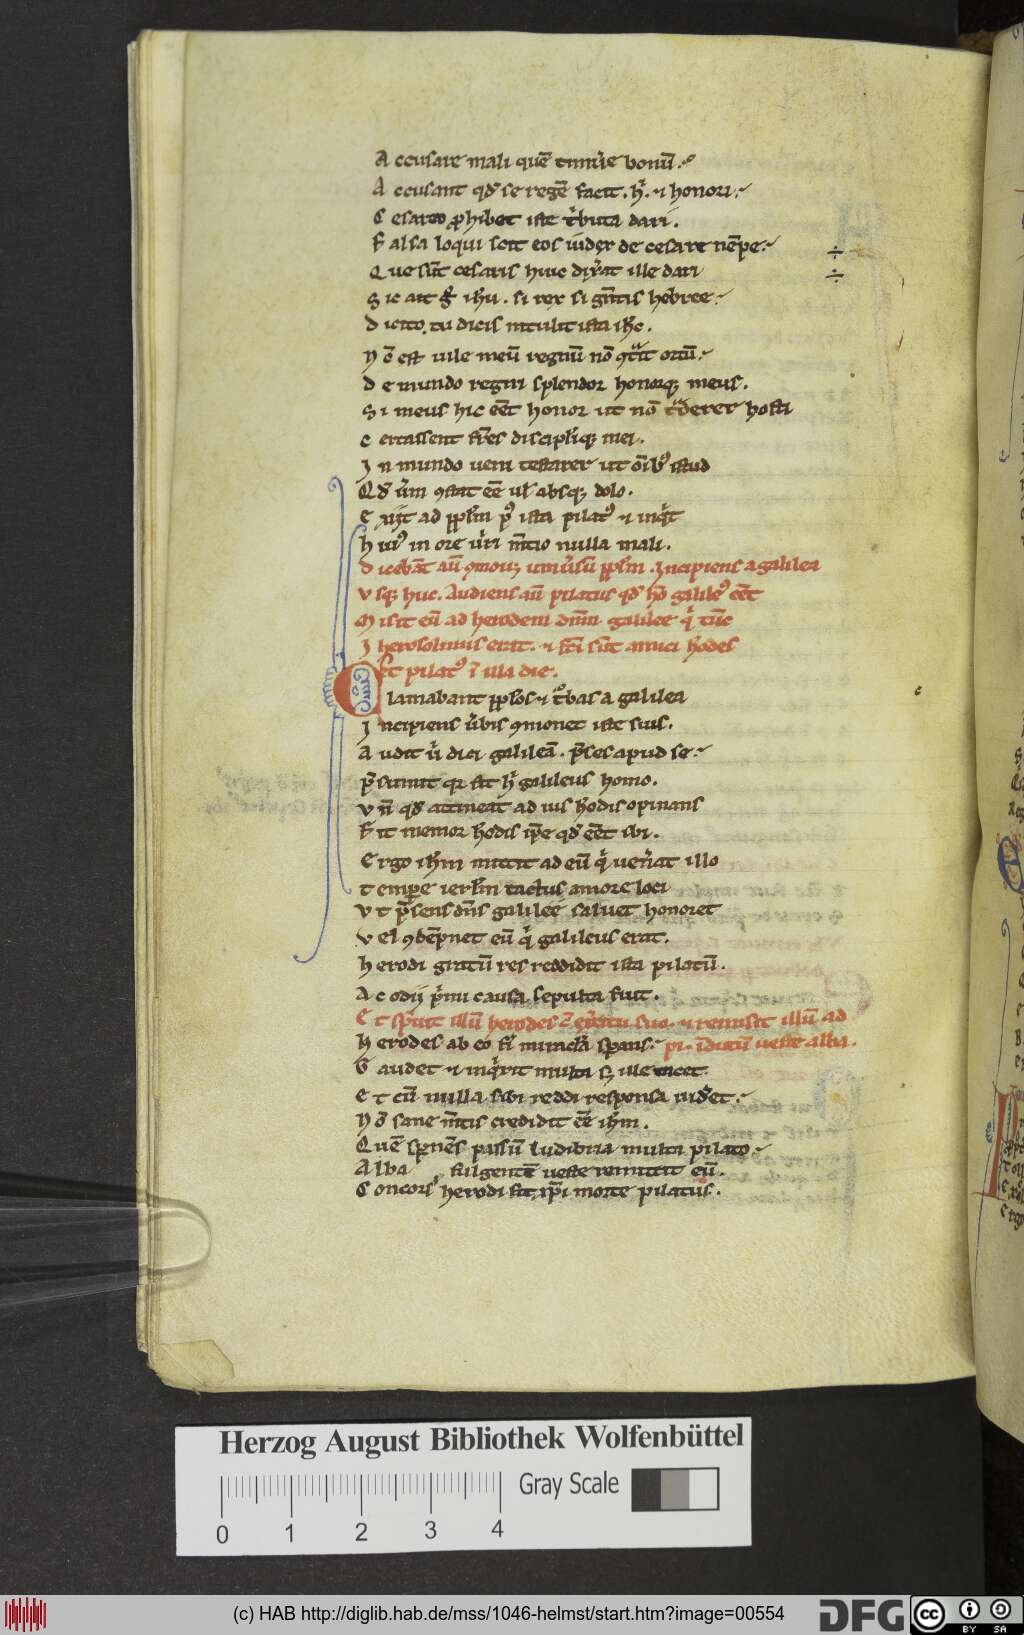 Accusare mali quē timuere bonū.
Accusant qd se regē facit. h. & honori
Cesareo phibet iste tbuta dari.
Falsa loqui scit eos uider de cesare nēpe
Que sūt cesaris huic dixerat ille dari
Sic ait g ihu. si rex si gentis hebree
Dicito. tu dicis intulit ista ihc.
Nō est uile meū regnū nō ortū
De mundo regni splendor honorq; meus.
Si meus hic eēt honor ut nō tderer hosti
Certassent fres disciplīq; mei.
In mundo ueni testarer ut oīb istud
Qd uerm 9stat eē ul absq; dolo.
Exijt ad pplm p9 ista pilat9 & inqt
Hui9 in ore uiri mtio nulla mali.
Dicebāt aū 9mouȝ uniusū pplm. Incipiens a galilea
Usq; huc. Audiens aū pilatus qd hō galile9 eēt
Misit eū ad herodem dnm galilee q tūc
Iherosolimis erat. & fci sūt amici hodes
et pilat9 ī illa die.
Clamabant pplos & tbas a galilea
Incipiens ubis 9monet iste suis.
Audit ū dici galileā. pses apud se
psciuit q sit h galileus homo.
Vn qd attineat ad ius hodis opinans
Fit memor hodis ipe qd eēt ibi.
Ergo ihm mittit ad eū q uenerat illo
tempe ierlm tactus amore loci
Vt psens dns galilee saluet honoret
Vel 9dēpnet eū q galileus erat.
Herodi gratū res reddidit ista pilatū.
Ac odij pimi causa sepulta fuit.
Et spreuit illū herodes c̄ exercitu suo. & remisit illū ad
Herodes ab eo fi miracla sperans pi. īdutū ueste alba.
Gaudet & inqrit multa s; ille tacet.
Et cū nulla sibi reddi responsa uidet
Nō sane mtis credidit eē ihm.
Quē spnēs passū ludibria multa pilato
Alba fulgentē ueste remittit eū.
Concors herodi fit xpi morte pilatus.
Herzog August Bibliothek Wolfenbüttel
Gray Scale
0 1 2 3 4
(c) HAB http://diglib.hab.de/mss/1046-helmst/start.htm?image=00554
DFG
cc BY SA